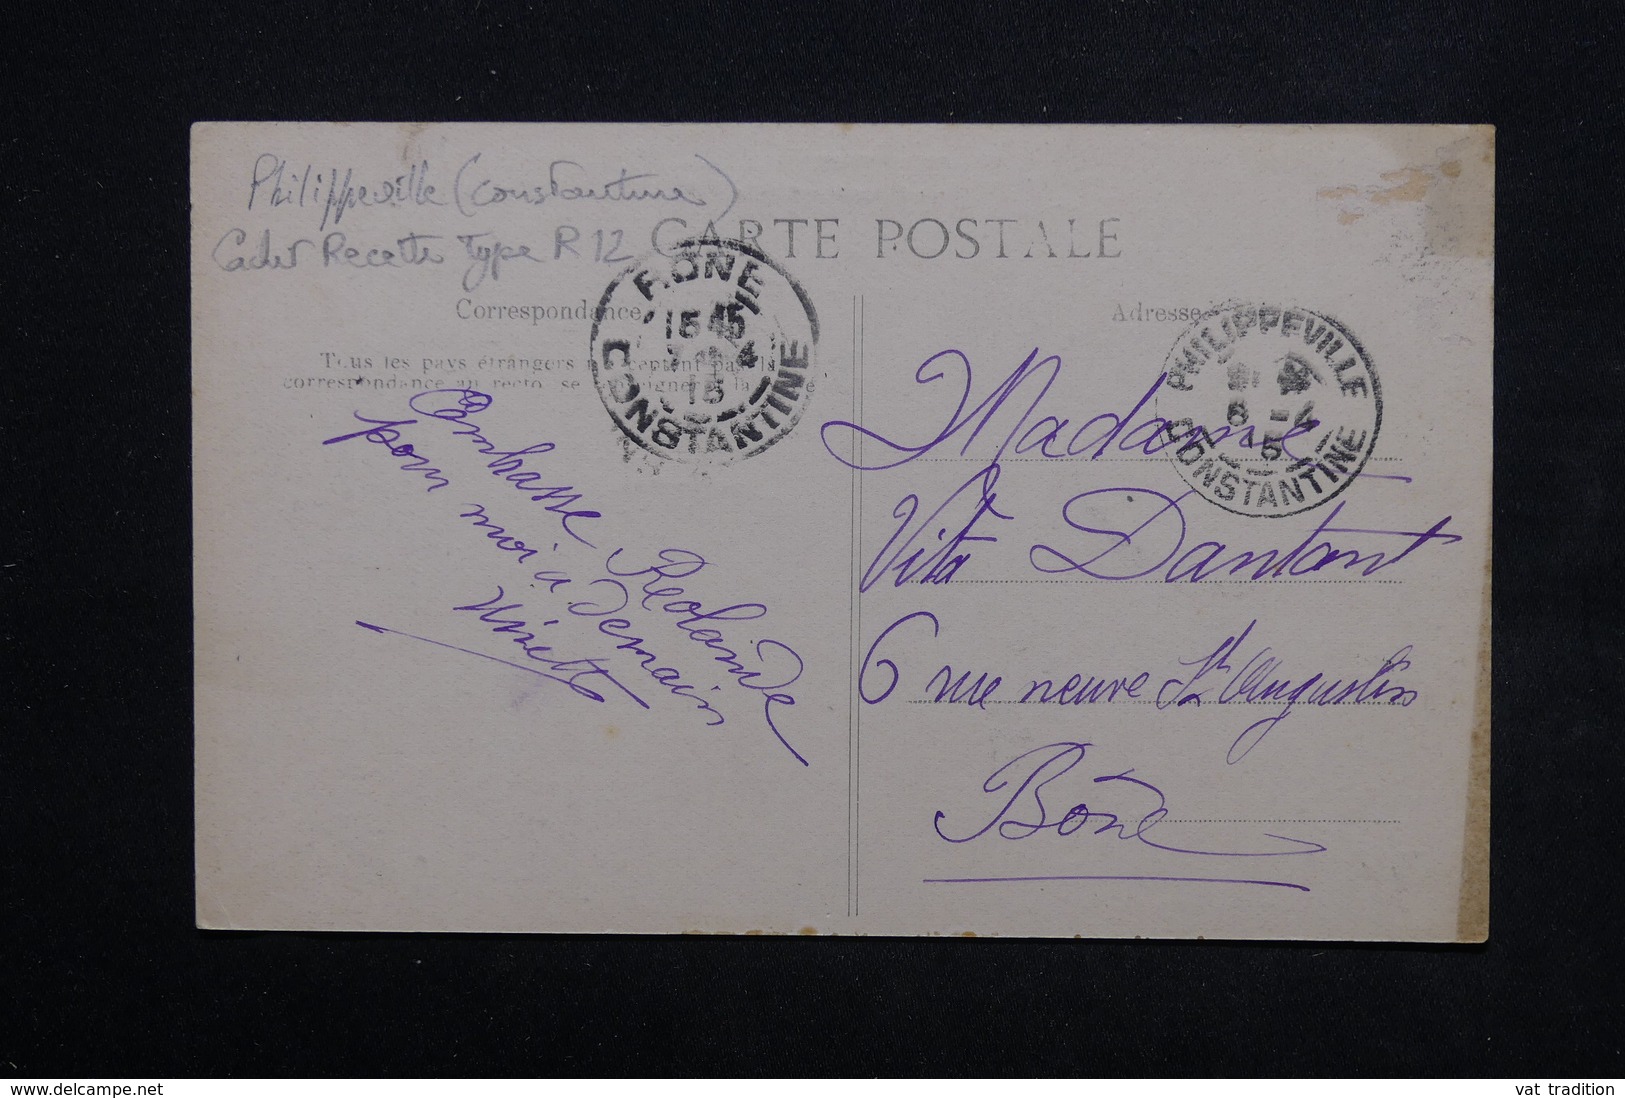 Philippeville (Constantine)
Cachet Recette Type R 12
CARTE POSTALE
Correspondance
Adresse
Tous les pays étrangers n'acceptent pas la
correspondance au recto, se renseigner à la
BÔNE
15 45
4
15
CONSTANTINE
PHILIPPEVILLE
6 -4
15
CONSTANTINE
embrasse Reolande
pour moi a Demain
Ninette
Madame
Vita Dantant
6 rue neuve St Augustin
Bône
delcampe.net
vat_tradition